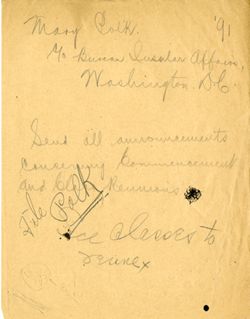 Mary Polk. '91
c/o Bureau Insular Affairs,
Washington D.C.
Send all announcements
concerning Commencement
and Class Reunions
File Polk
Classes to